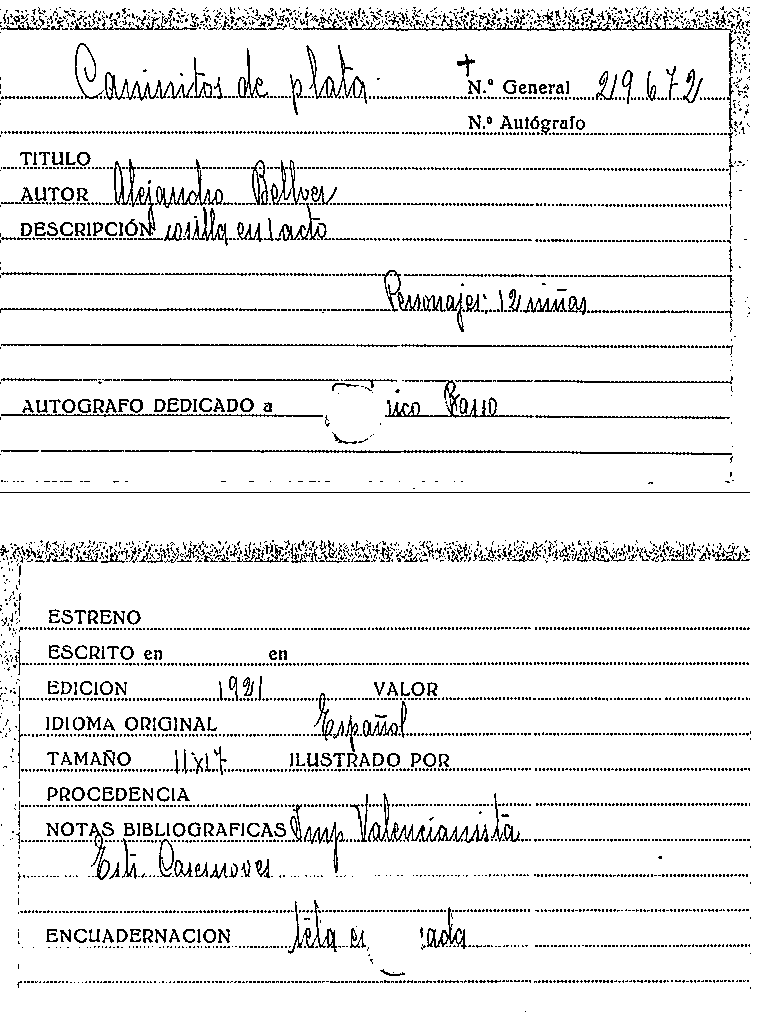 Caminitos de plata.
N.º General 219672
N.º Autógrafo
TITULO
AUTOR Alejandro Bellver
DESCRIPCIÓN cosilla en 1 acto
Personajes: 12 niñas
AUTOGRAFO DEDICADO a rico
ESTRENO
ESCRITO en en
EDICION 1921 VALOR
IDIOMA ORIGINAL Español
TAMAÑO 11x17 ILUSTRADO POR
PROCEDENCIA
NOTAS BIBLIOGRAFICAS Imp Valencianista
Casanoves
ENCUADERNACION tela